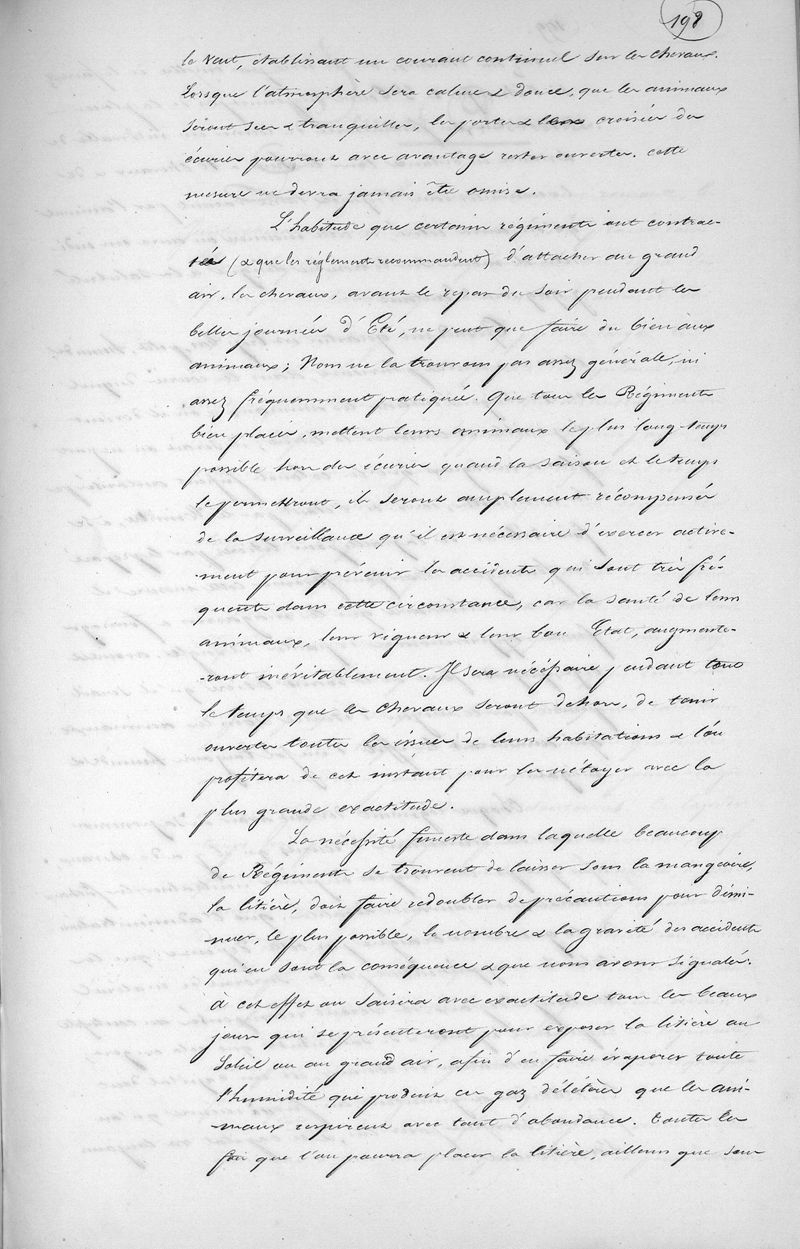 198
le vent, établissant un courant continuel sur les chevaux.
Lorsque l'atmosphère sera calme & douce, que les animaux
seront secs & tranquilles, les portes & les croisées des
écuries pourront avec avantage rester ouvertes. cette
mesure ne devra jamais être omise.
L'habitude que certains régiments ont contrac-
té (& que les réglements recommandent) d'attacher au grand
air, les chevaux, avant le repas du soir pendant les
belles journées d'Eté, ne peut que faire du bien aux
animaux; Nous ne la trouvons pas assez générale, ni
assez fréquemment pratiquée. Que tous les Régiments
bien placés, mettent leurs animaux le plus long-temps
possible hors des écuries quand la saison et le temps
le permettront, ils seront amplement récompensés
de la surveillance qu'il est nécessaire d'exercer active-
-ment pour prévenir les accidents qui sont très fré-
quents dans cette circonstance, car la santé de leurs
animaux, leur vigueur & leur bon Etat, augmente-
-ront inévitablement. Il sera nécessaire pendant tout
le temps que les chevaux seront dehors, de tenir
ouvertes toutes les issues de leurs habitations & l'on
profitera de cet instant pour les nétoyer avec la
plus grande exactitude.
La nécessité funeste dans laquelle beaucoup
de Régiments se trouvent de laisser sous la mangeoire,
la litière, doit faire redoubler de précautions pour dimi-
nuer, le plus possible, le nombre & la gravité des accidents
qui en sont la conséquence & que nous avons signalés.
à cet effet on saisira avec exactitude tous les beaux
jours qui se présenteront pour exposer la litière au
Soleil ou au grand air, afin d'en faire évaporer toute
l'humidité qui produit ces gaz délétères que les ani-
maux respirent avec tant d'abondance. Toutes les
fois que l'on pourra placer la litière, ailleurs que sous